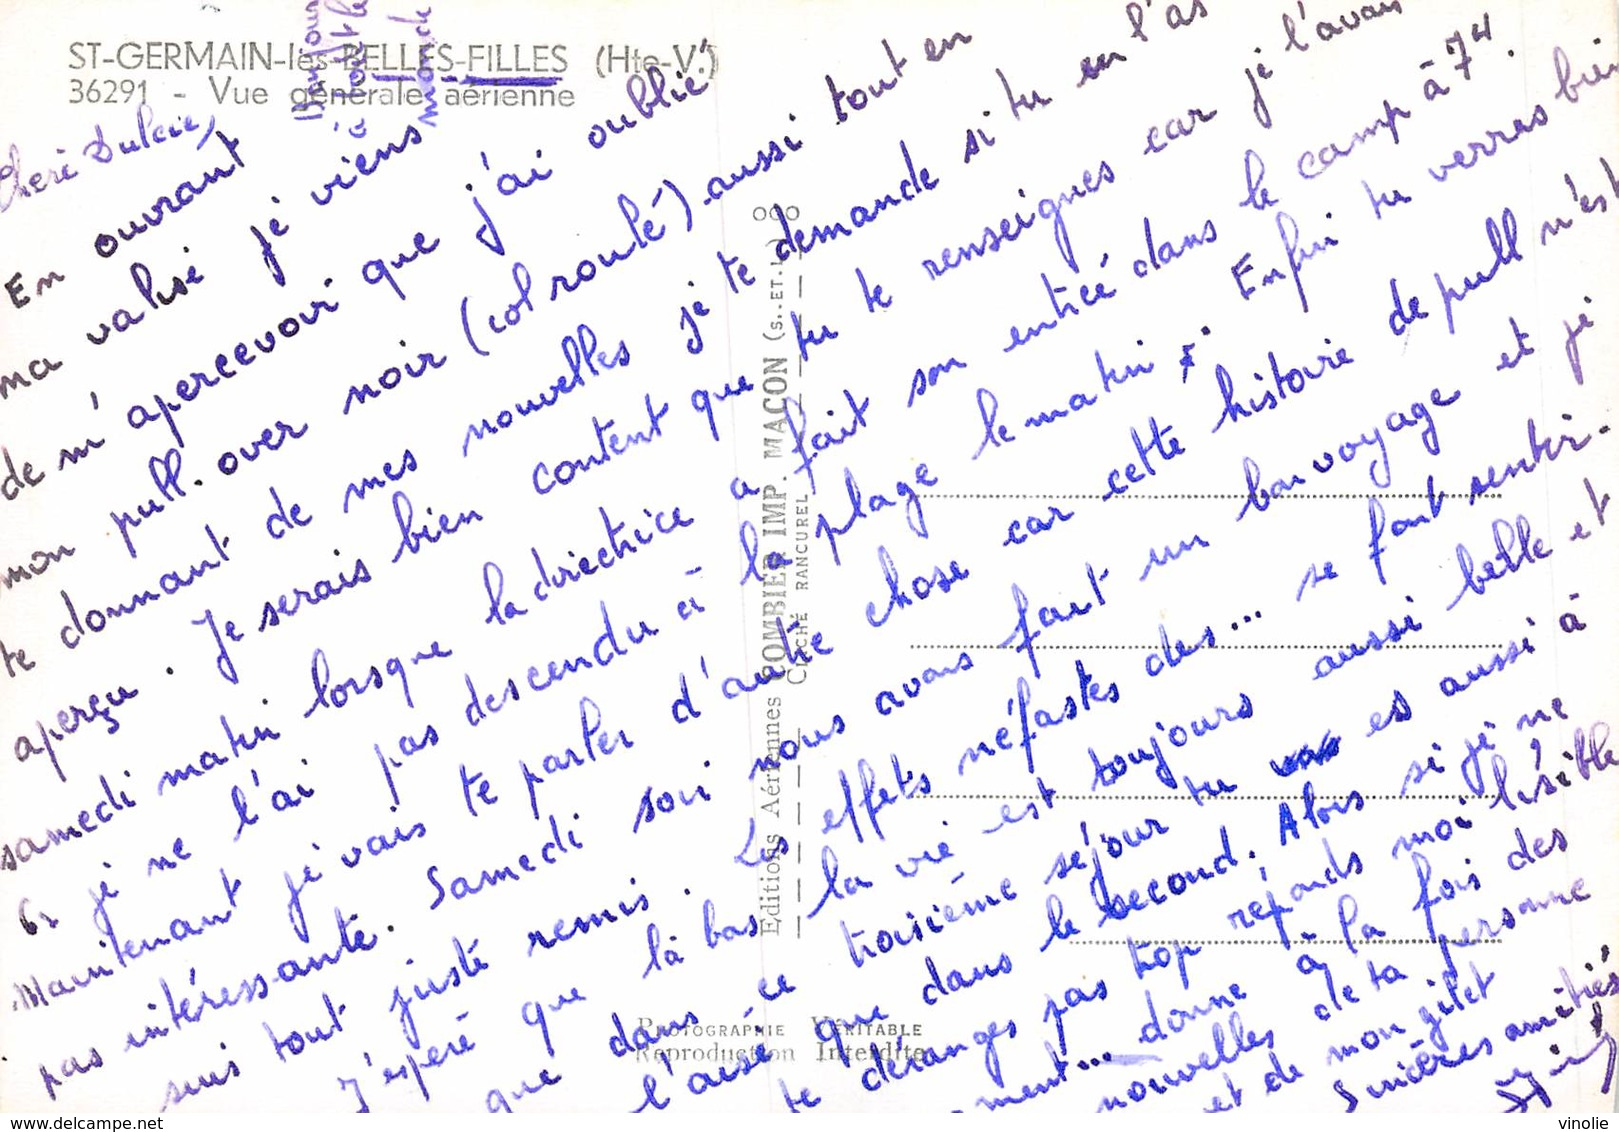 ST-GERMAIN-les-BELLES-FILLES (Hte-V.)
36291 - Vue générale aérienne
Bonjour
à tout le
monde
Chère Dulcie,
En ouvrant
ma valise je viens
de m'apercevoir que j'ai oublié
mon pull-over noir (col roulé) aussi tout en
te donnant de mes nouvelles je te demande si tu en l'as
aperçu. Je serais bien content que tu te renseignes car je l'avais
samedi matin lorsque la directrice a fait son entrée dans le camp à 7H.
Or je ne l'ai pas descendu à la plage le matin. Enfin tu verras bien
Maintenant je vais te parler d'autre chose car cette histoire de pull n'est
pas intéressante. Samedi soir nous avons fait un bon voyage et je
suis tout juste remis. Les effets néfastes des... se font sentir.
J'espère que là bas la vie est toujours aussi belle et
que dans ce troisième séjour tu es aussi à
l'aise que dans le second. Alors si je ne
te déranges pas trop réponds moi lisible
ment... donne à la fois des
nouvelles de ta personne
et de mon gilet
Sincères amitiés
Editions Aériennes COMBIER IMP. MACON (S. ET L.)
CLICHÉ RANCUREL
PHOTOGRAPHIE VÉRITABLE
Reproduction Interdite
delcampe.net
vinolie